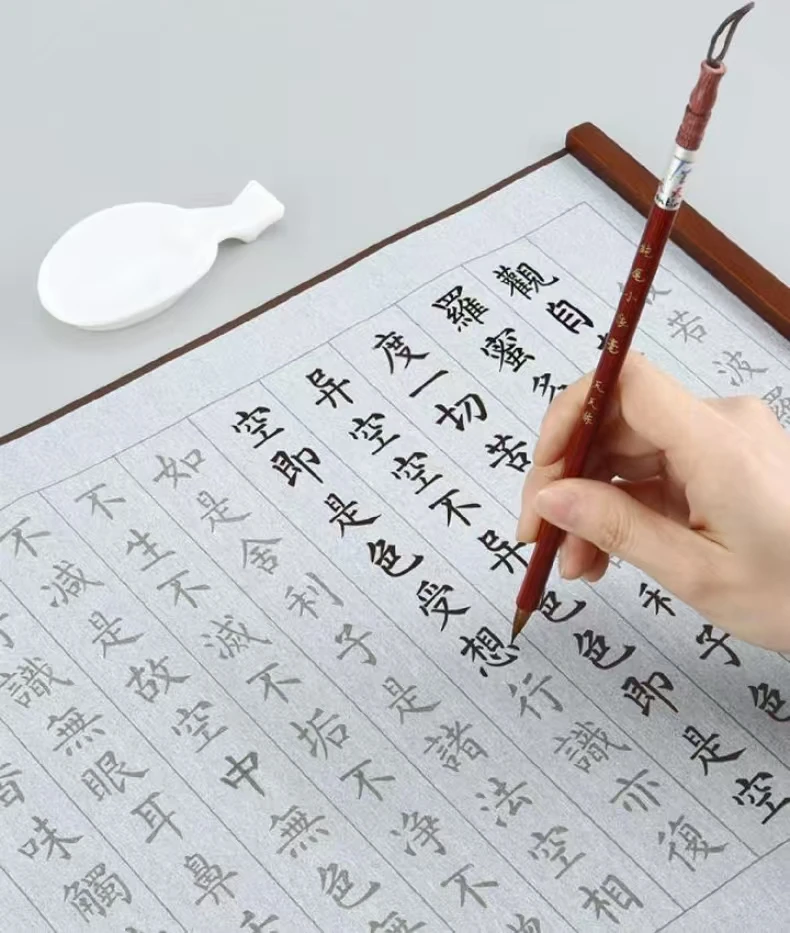 若波羅
觀自
羅蜜多
度一切苦利子色
異空空不異色色即是空
空即是色受想行識亦復
如是舍利子是諸法空相
不生不滅不垢不淨不
不減是故空中無色無
識無眼耳鼻
香味觸